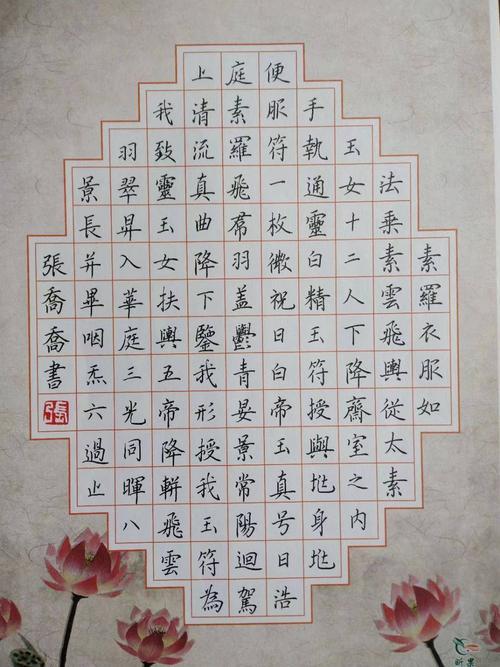 素羅衣服如
法乘素雲飛輿從太素
玉女十二人下降齋室之内
手執通靈白精玉符授與垗身垗
便服符一枚微祝曰白帝玉真号曰浩
庭素羅飛席羽盖鬱青晏景常陽迴駕
上清流真曲降下鑒我形授我玉符為
我致靈玉女扶輿五帝降軿飛雲
羽翠昇入華庭三光同暉八
景長并畢咽炁六過止
張喬喬書
張